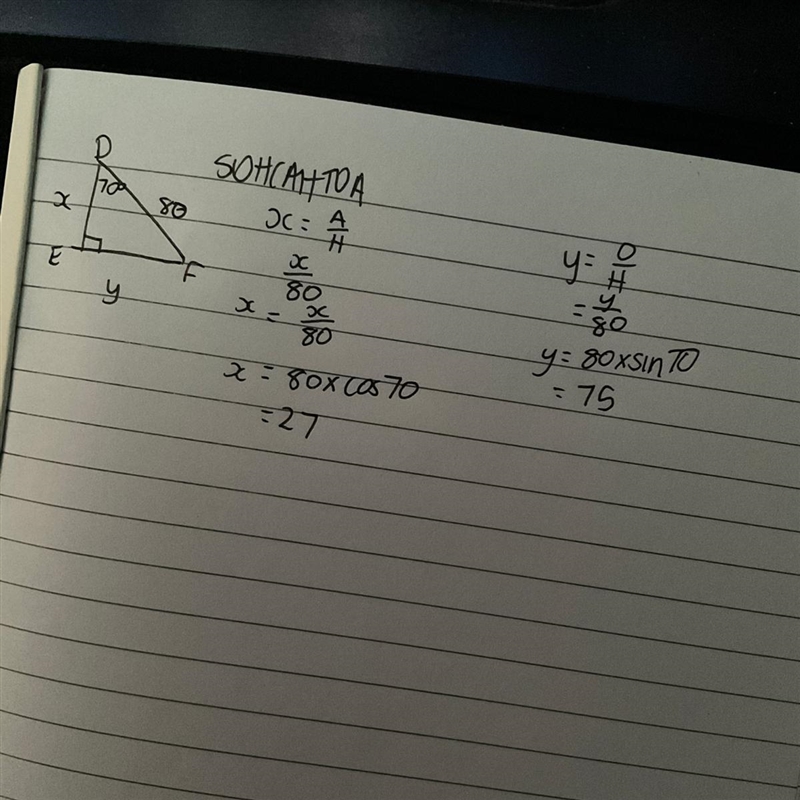 D
70°
x
80
E
F
y
SOHCAHTOA
x = A/H
x/80
x = x/80
x = 80xcos70
=27
y= O/H
= y/80
y= 80xsin70
= 75